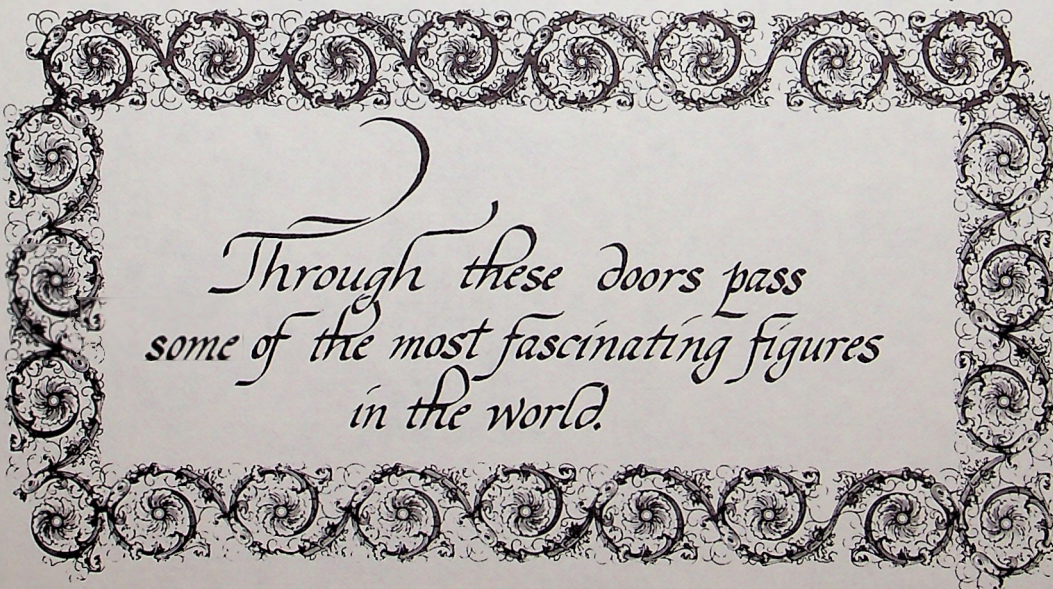 Through these doors pass
some of the most fascinating figures
in the world.